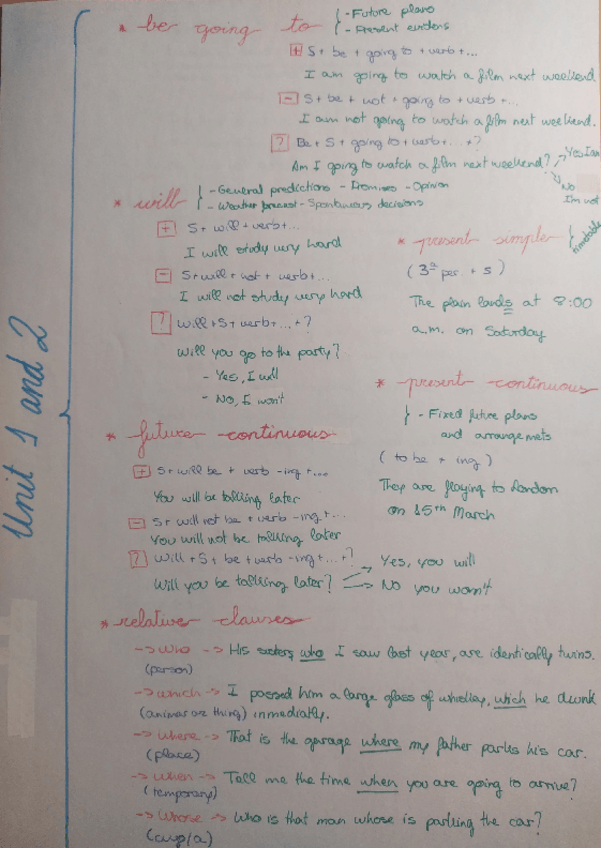 Unit 1 and 2
* be going to
- Future plans
- Present evidens
+ S + be + going to + verb + ...
I am going to watch a film next weekend
- S + be + not + going to + verb + ...
I am not going to watch a film next weekend.
? Be + S + going to + verb + ... + ?
Am I going to watch a film next weekend?
Yes I am
No I'm not
* will
- General predictions - Promises - Opinion
- Weather forecast - Spontanous decisions
+ S + will + verb + ...
I will study very hard
- S + will + not + verb + ...
I will not study very hard
? Will + S + verb + ... + ?
Will you go to the party?
- Yes, I will
- No, I won't
* present simple
timetable
(3ª per. + s)
The plain lands at 8:00
a.m. on Saturday
* present continuous
- Fixed future plans
and arrangemets
(to be + ing)
They are flaying to London
on 15th March
* future continuous
+ S + will be + verb -ing + ...
You will be talking later
- S + will not be + verb -ing + ...
You will not be talking later
? Will + S + be + verb -ing + ... + ?
Will you be talking later?
-> Yes, you will
-> No you won't
* relative clauses
-> who -> His sisters who I saw last year, are identically twins.
(person)
-> which -> I possed him a large glass of whiskey, wich he drunk
(animal or thing) inmediatly.
-> where -> That is the garage where my father parks his car.
(place)
-> when -> Tell me the time when you are going to arrive?
(temporary)
-> whose -> Who is that man whose is parking the car?
(cuyo/a)